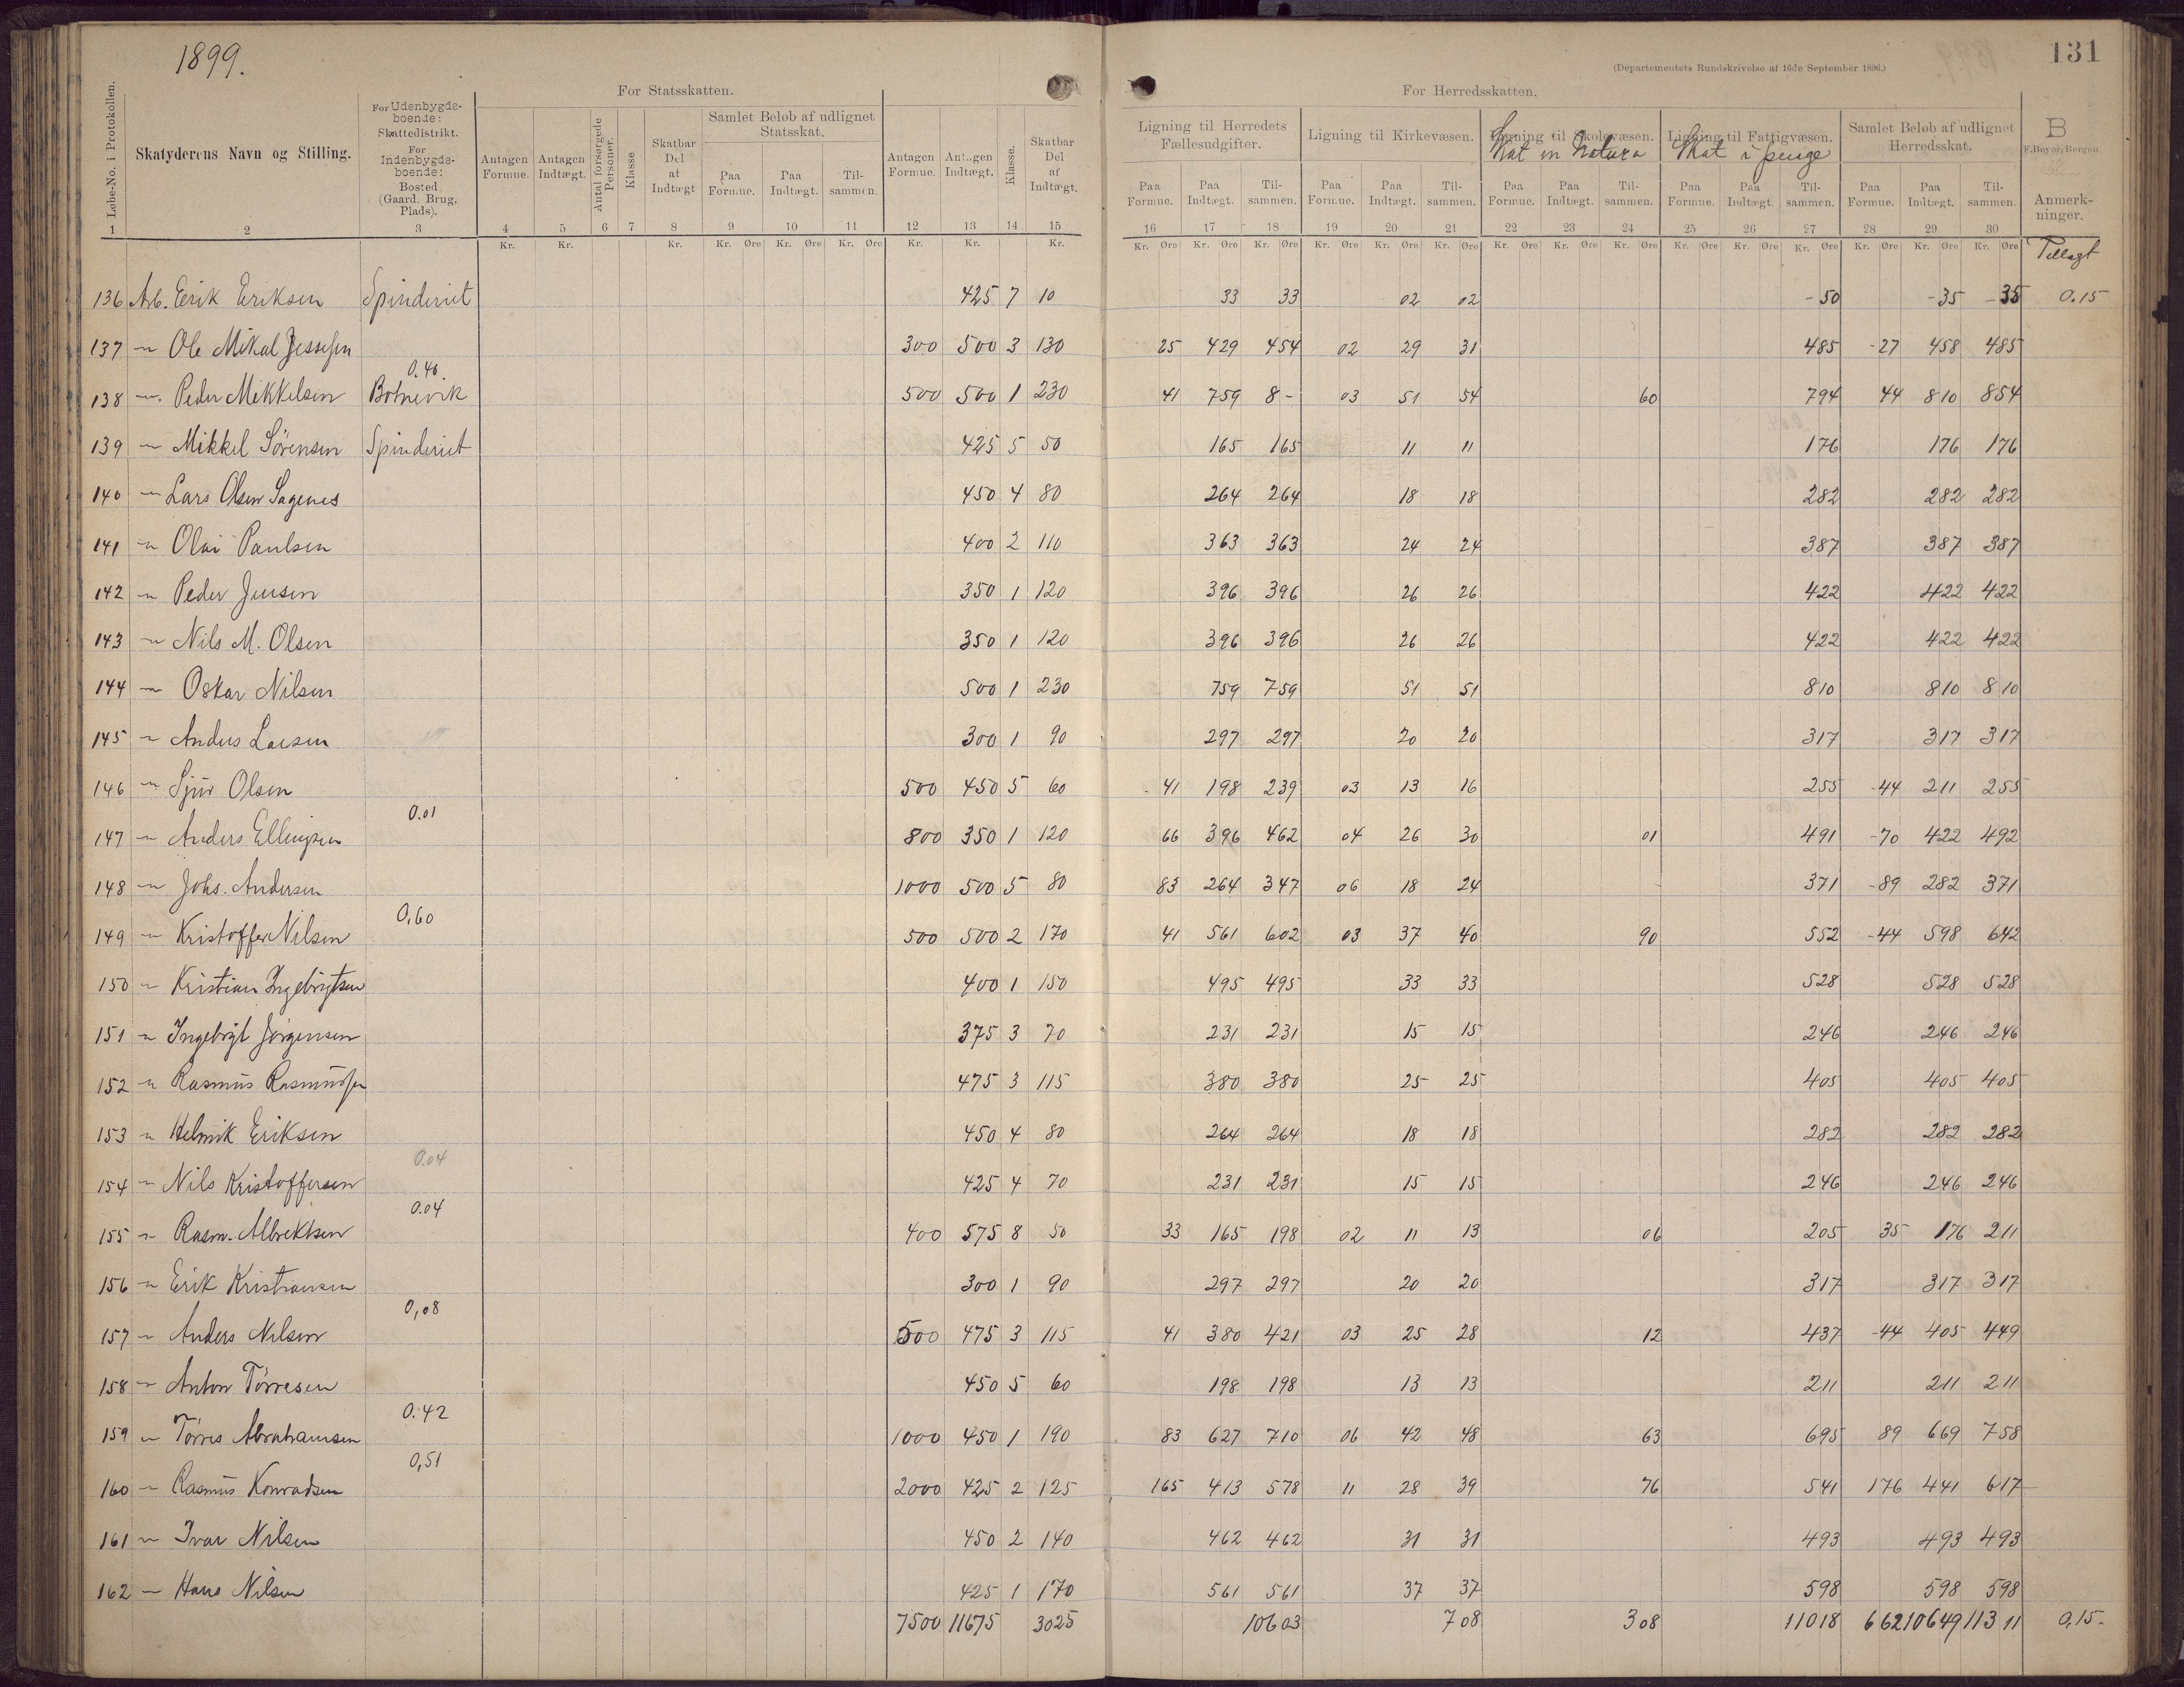 1899.
131
(Departementets Rundskrivelse af 16de September 1896.)
For Statsskatten.
For Herredsskatten.
Løbe-No. i Protokollen.
Skatyderens Navn og Stilling.
For Udenbygds-boende: Skattedistrikt. For Indenbygds-boende: Bosted (Gaard. Brug, Plads).
Antagen Formue.
Antagen Indtægt.
Antal forsørgede Personer.
Klasse
Skatbar Del at Indtægt
Samlet Beløb af udlignet Statsskat.
Paa Formue.
Paa Indtægt.
Til-sammen.
Antagen Formue.
Antagen Indtægt.
Klasse.
Skatbar Del af Indtægt.
Ligning til Herredets Fællesudgifter.
Ligning til Kirkevæsen.
Ligning til Skolevæsen.
Skat in Natura
Ligning til Fattigvæsen.
Skat i penge
Samlet Beløb af udlignet Herredsskat.
B
F. Beyer, Bergen.
Paa Formue. Paa Indtægt. Til-sammen. Paa Formue. Paa Indtægt. Til-sammen. Paa Formue. Paa Indtægt. Til-sammen. Paa Formue. Paa Indtægt. Til-sammen. Paa Formue. Paa Indtægt. Til-sammen.
Anmerk-ninger.
1 2 3 4 5 6 7 8 9 10 11 12 13 14 15 16 17 18 19 20 21 22 23 24 25 26 27 28 29 30
Kr. Kr. Kr. Kr. Øre Kr. Øre Kr. Øre Kr. Kr. Kr. Kr. Øre Kr. Øre Kr. Øre Kr. Øre Kr. Øre Kr. Øre Kr. Øre Kr. Øre Kr. Øre Kr. Øre Kr. Øre Kr. Øre Kr. Øre Kr. Øre Kr. Øre
Tillagt
136 Arb. Eerik Eriksen Spinderiet 425 7 10 33 33 02 02 - 50 - 35 - 35 0.15
137 " Ole Mikal Jessesen 300 500 3 130 25 429 454 02 29 31 485 - 27 458 485
0.40
138 " Peder Mikkelsen Botnevik 500 500 1 230 41 759 8 - 03 51 54 60 794 44 810 854
139 " Mikkel Sørensen Spinderiet 425 5 50 165 165 11 11 176 176 176
140 " Lars Olsen Sagenes 450 4 80 264 264 18 18 282 282 282
141 " Olai Paulsen 400 2 110 363 363 24 24 387 387 387
142 " Peder Jensen 350 1 120 396 396 26 26 422 422 422
143 " Nils M. Olsen 350 1 120 396 396 26 26 422 422 422
144 " Oskar Nilsen 500 1 230 759 759 51 51 810 810 810
145 " Anders Larsen 300 1 90 297 297 20 20 317 317 317
146 " Sjur Olsen 500 450 5 60 41 198 239 03 13 16 255 - 44 211 255
0.01
147 " Anders Ellingsen 800 350 1 120 66 396 462 04 26 30 01 491 - 70 422 492
148 " Johs. Andersen 1000 500 5 80 83 264 347 06 18 24 371 - 89 282 371
0,60
149 " Kristoffer Nilsen 500 500 2 170 41 561 602 03 37 40 90 552 - 44 598 642
150 " Kristian Ingebrigtsen 400 1 150 495 495 33 33 528 528 528
151 " Ingebrigt Jørgensen 375 3 70 231 231 15 15 246 246 246
152 " Rasmus Rasmussen 475 3 115 380 380 25 25 405 405 405
153 " Helmik Eriksen 450 4 80 264 264 18 18 282 282 282
0.04
154 " Nils Kristoffersen 425 4 70 231 231 15 15 246 246 246
0.04
155 " Rasm. Albrektsen 400 575 8 50 33 165 198 02 11 13 06 205 35 176 211
156 " Erik Kristiansen 300 1 90 297 297 20 20 317 317 317
0,08
157 " Anders Nilsen 500 475 3 115 41 380 421 03 25 28 12 437 - 44 405 449
158 " Anton Tørresen 450 5 60 198 198 13 13 211 211 211
0.42
159 " Tørres Abrahamsen 1000 450 1 190 83 627 710 06 42 48 63 695 89 669 758
0,51
160 " Rasmus Konradsen 2000 425 2 125 165 413 578 11 28 39 76 541 176 441 617
161 " Ivar Nilsen 450 2 140 462 462 31 31 493 493 493
162 " Hans Nilsen 425 1 170 561 561 37 37 598 598 598
7500 11675 3025 106 03 7 08 3 08 110 18 6 62 106 49 113 11 0,15.